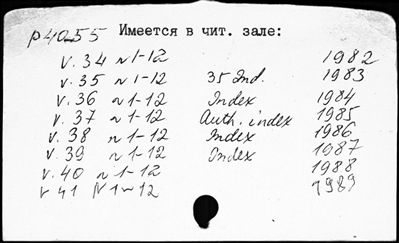 p4055 Имеется в чит. зале:
v. 34 n 1-12 1982
v. 35 n 1-12 35 Ind. 1983
v. 36 n 1-12 Index 1984
v. 37 n 1-12 Auth. index 1985
v. 38 n 1-12 Index 1986
v. 39 n 1-12 Index 1987
v. 40 n 1-12 1988
v 41 N 1-12 1989